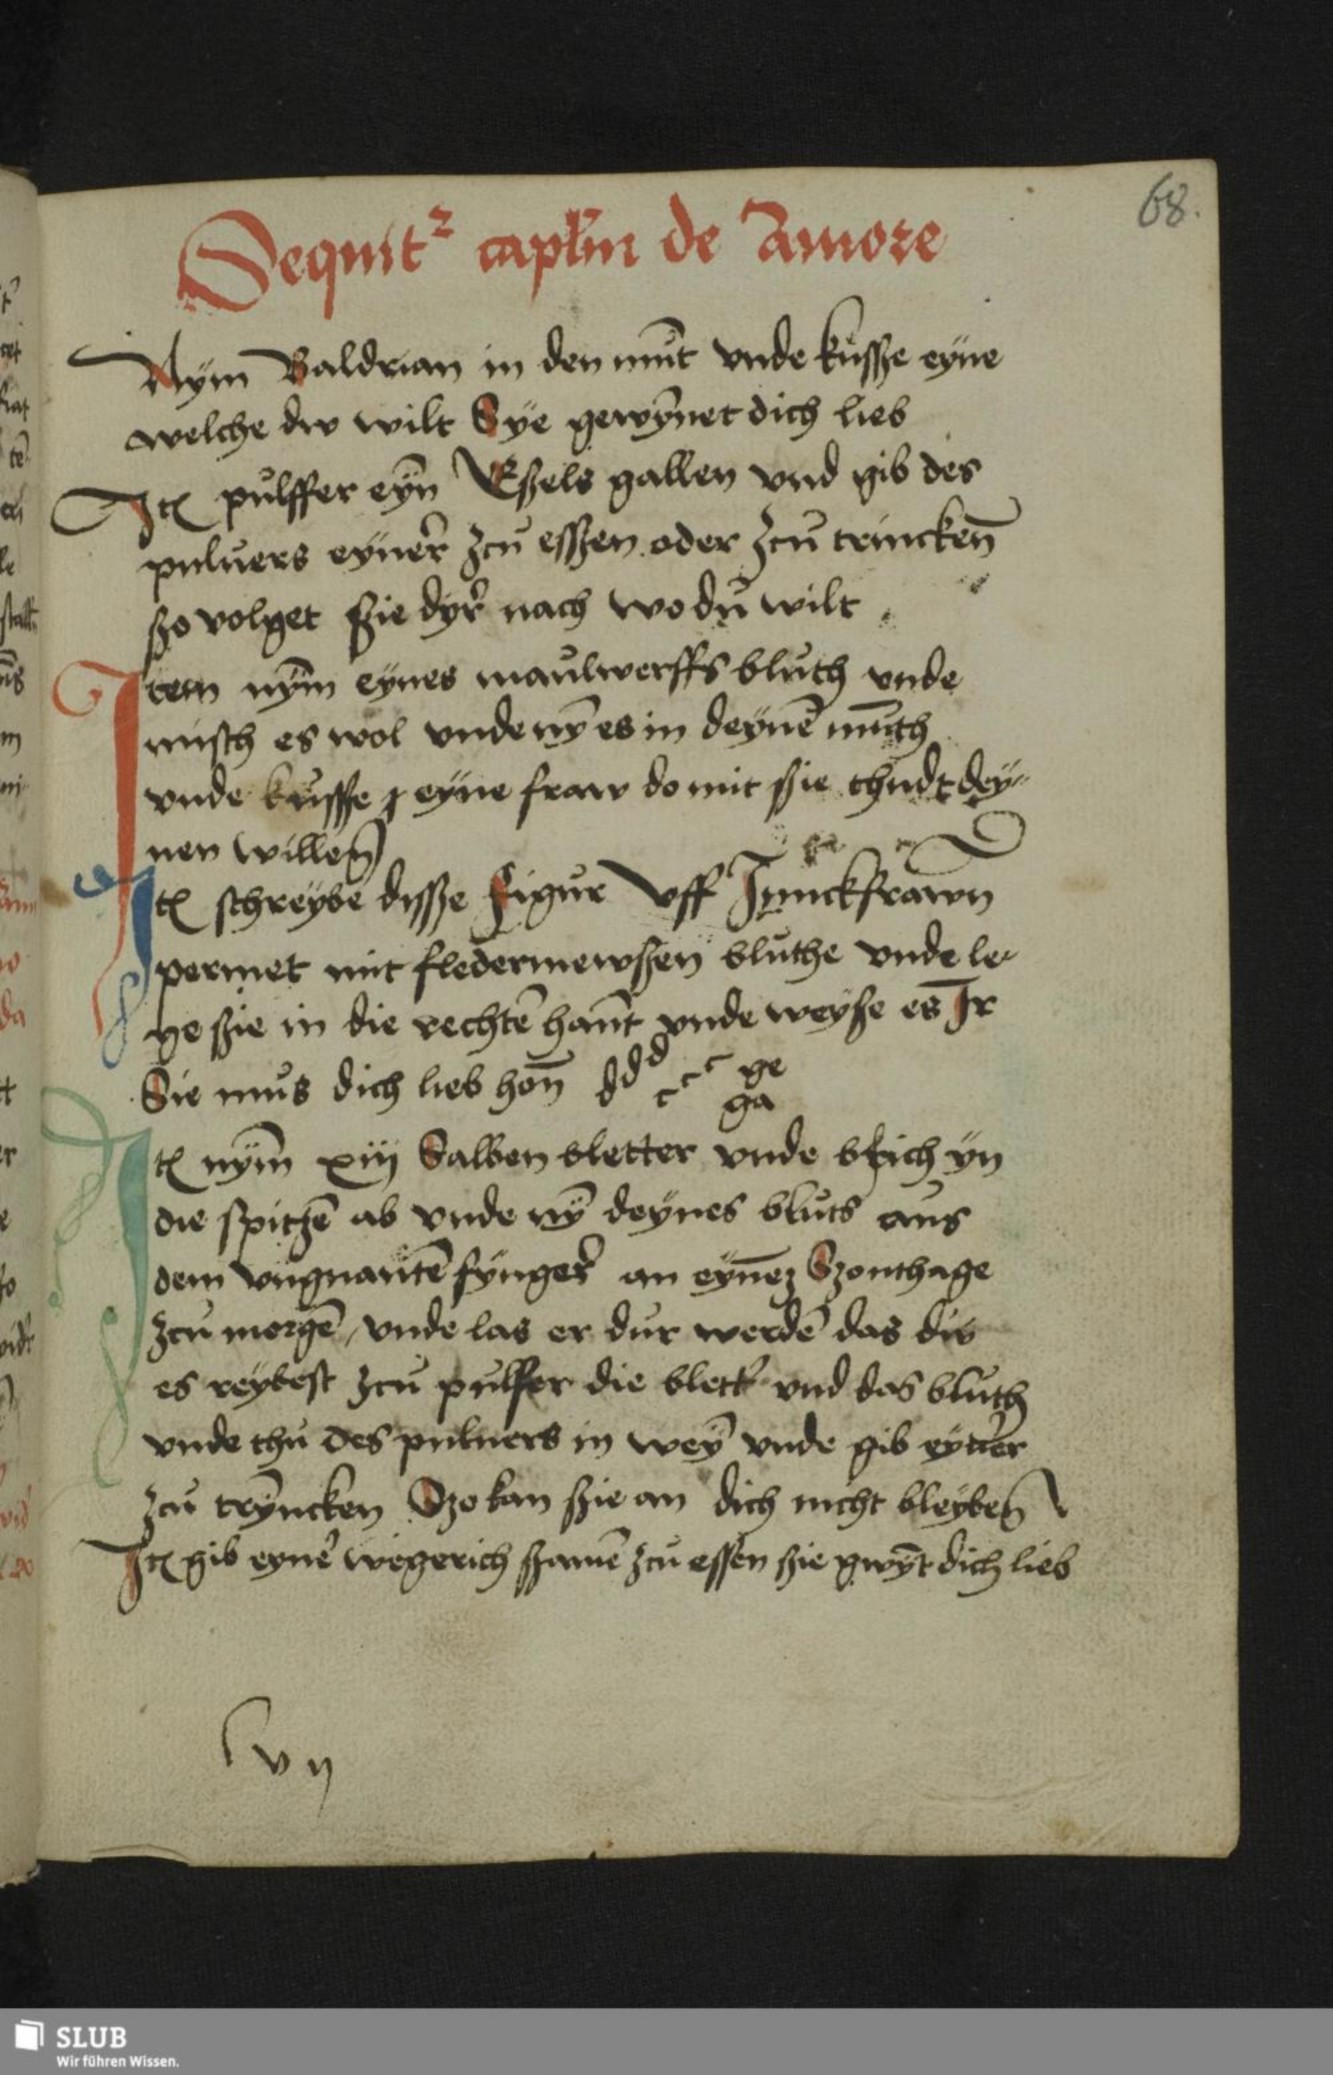 68.
Sequit² caplm̄ de Amore
Nÿm Baldrian in den mūt vnde kŭsße eyne
welche dw wilt Sÿe gewȳnet dich lieb
Itꝫ pŭlffer eyn̄ Eßels gallen vnd gib des
puluers eyner̄ zcŭ esßen oder zcŭ trincken̄
ßo volget ßie dyr̄ nach wo dŭ wilt
Item nym̄ eynes maŭlwerffs blŭth vnde
misch es wol vnde nȳ es in deynē mŭth
vnde kŭsse eyne fraw do mit ßie thudt dey-
nen willen
Itꝫ schreybe disße figŭr Vff Jŭnckfrawn
permet mit fledermewßen blŭthe vnde le-
ge ßie in die rechtē hant̄ vnde weyse es Ir
Sie mŭs dich lieb hon̄ d d d c c c ge
ga
Itꝫ nym̄ xiij Salben bletter vnde brich yn
die spitzē ab vnde nȳ deynes blŭts aŭs
dem vngnantē fynger̄ an eyneꝫ Szonthage
zcŭ morgē, vnde las er dur werdē das dw
es reybest zcŭ pŭlffer die blett̄ vnd das blŭth
vnde thŭ des puluers in weȳ vnde gib eyner
zcŭ trȳncken Szo kan ßie an dich nicht bleyben
Itꝫ gib eynē wegerich ßamē zcŭ essen ßie gwȳt dich lieb
SLUB
Wir führen Wissen.